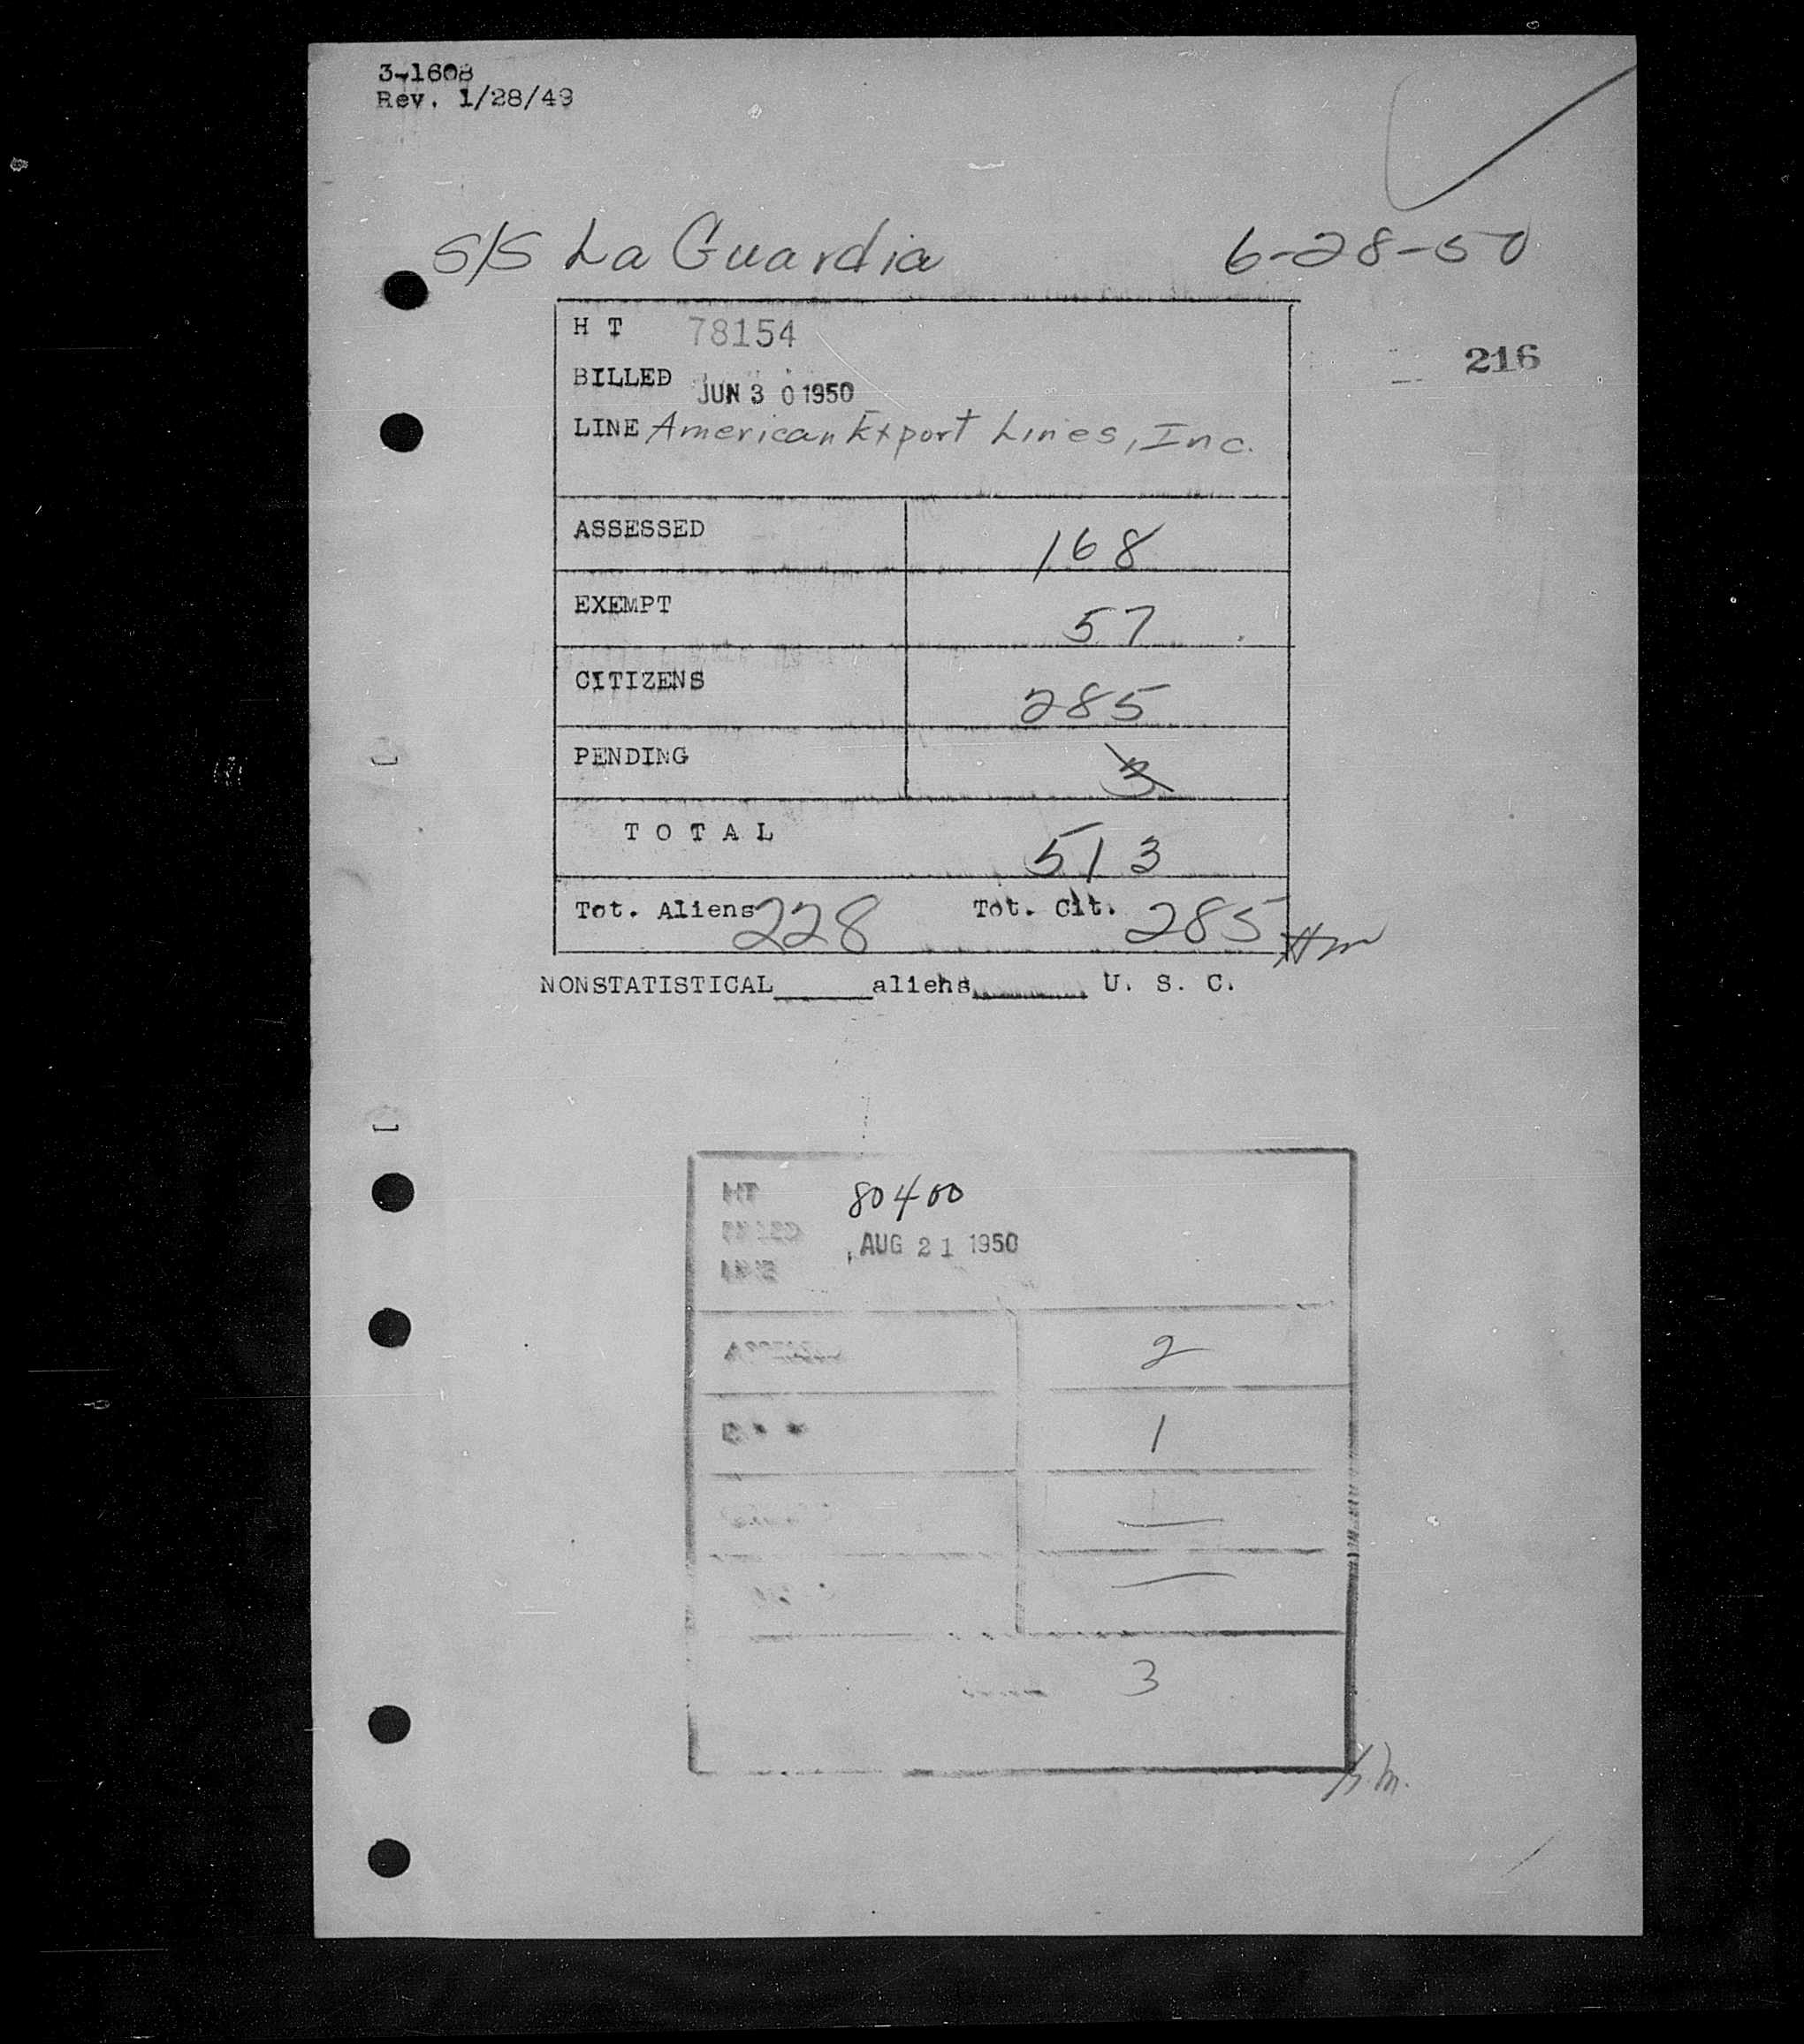 3-1608
Rev. 1/28/49
S/S La Guardia 6-28-50
H T 78154
216
BILLED JUN 3 0 1950
LINE American Export Lines, Inc.
ASSESSED 168
EXEMPT 57
CITIZENS 285
PENDING 3
T O T A L 513
Tot. Aliens 228 Tot. Cit. 285 HM
NONSTATISTICAL aliens U. S. C.
80400
AUG 21 1950
2
1
—
—
3
h.m.